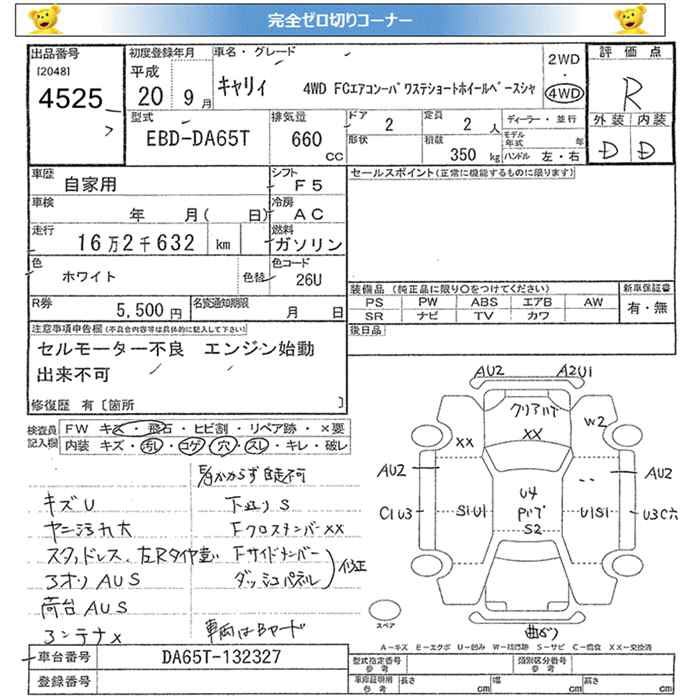 完全ゼロ切りコーナー
出品番号
[2048]
4525
初度登録年月
平成
20 9月
車名・グレード
キャリィ 4WD FCエアコンパワステショートホイールベースシャ
2WD
・
4WD
評価点
R
外装 内装
D D
型式
EBD-DA65T
排気量
660
CC
ドア
2
定員
2 人
形状
積載
350 kg
ディーラー・並行
モデル年式 年
ハンドル 左・右
車歴
自家用
シフト
F5
車検
年 月( 日)
冷房
AC
走行
16万2千632 km
燃料
ガソリン
色
ホワイト
色替
色コード
26U
R券
5,500円
名変通知期限
月 日
セールスポイント(正常に機能するものに限ります)
装備品 (純正品に限り○をつけてください)
PS PW ABS エアB AW
SR ナビ TV カワ
新車保証書
有・無
後日品
注意事項申告欄(不具合内容等は具体的に記入して下さい)
セルモーター不良 エンジン始動
出来不可
修復歴 有〔箇所 〕
検査員記入欄
FW キズ・飛石・ヒビ割・リペア跡・×要
内装 キズ・汚レ・コゲ・穴・スレ・キレ・破レ
E/gかからず自走不可
キズU
ヤニ汚れ大
スタッドレス、左Rタイヤ違い
3オリAUS
荷台AUS
コンテナ×
下廻りS
FクロスメンバーXX
Fサイドメンバー
ダッシュパネル
修正
車両はBヤード
AU2 A2U1
クリアハゲ
W2
XX XX
AU2 AU2
C1U3 S1U1 U4 U1S1 U3C穴
Pハゲ
S2
スペア
曲がり
A-キズ E-エクボ U-凹み W-補修跡 S-サビ C-腐食 XX-交換済
車台番号
DA65T-132327
登録番号
型式指定番号
参考
類別区分番号
参考
車庫証明用
参考
長さ cm 幅 cm 高さ cm